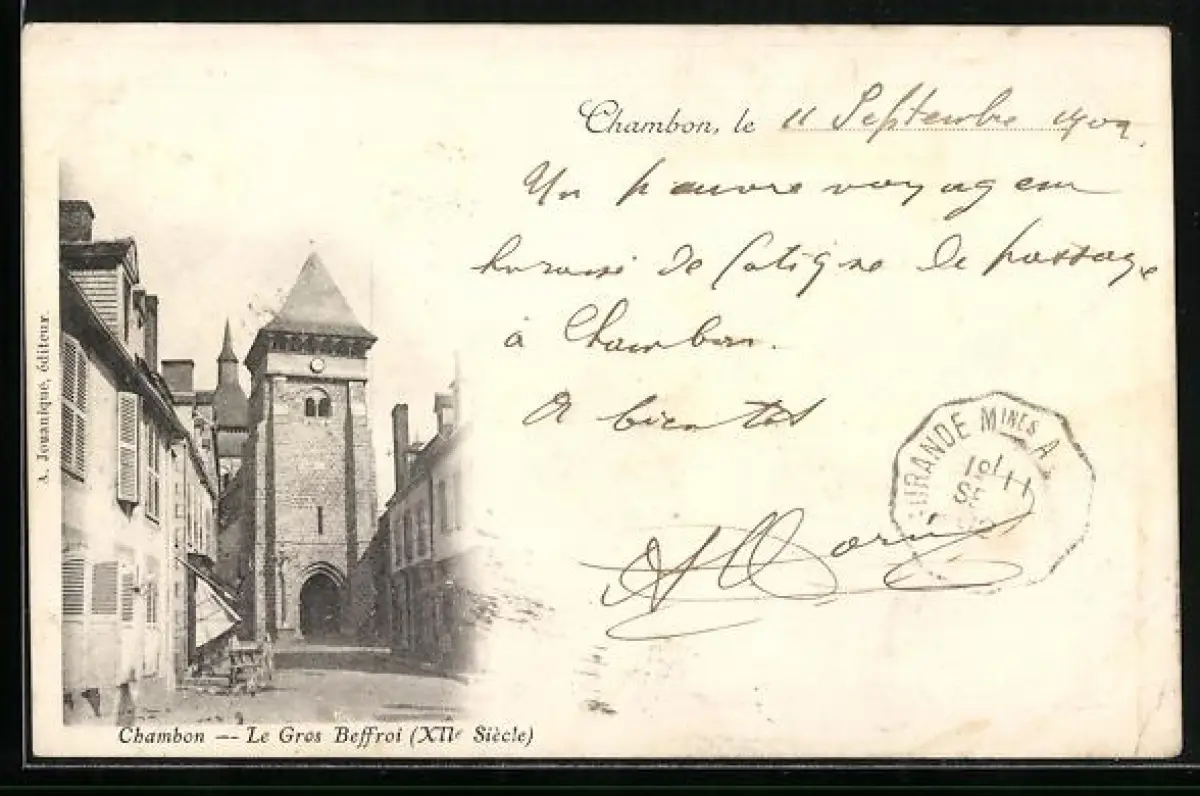 Chambon, le 11 Septembre 190
Un pauvre voyageur
de fatigue de passage
à Chambon.
A bientôt
GURANDE MINES A
11
SE
A. Jouanique, éditeur.
Chambon — Le Gros Beffroi (XIIe Siècle)